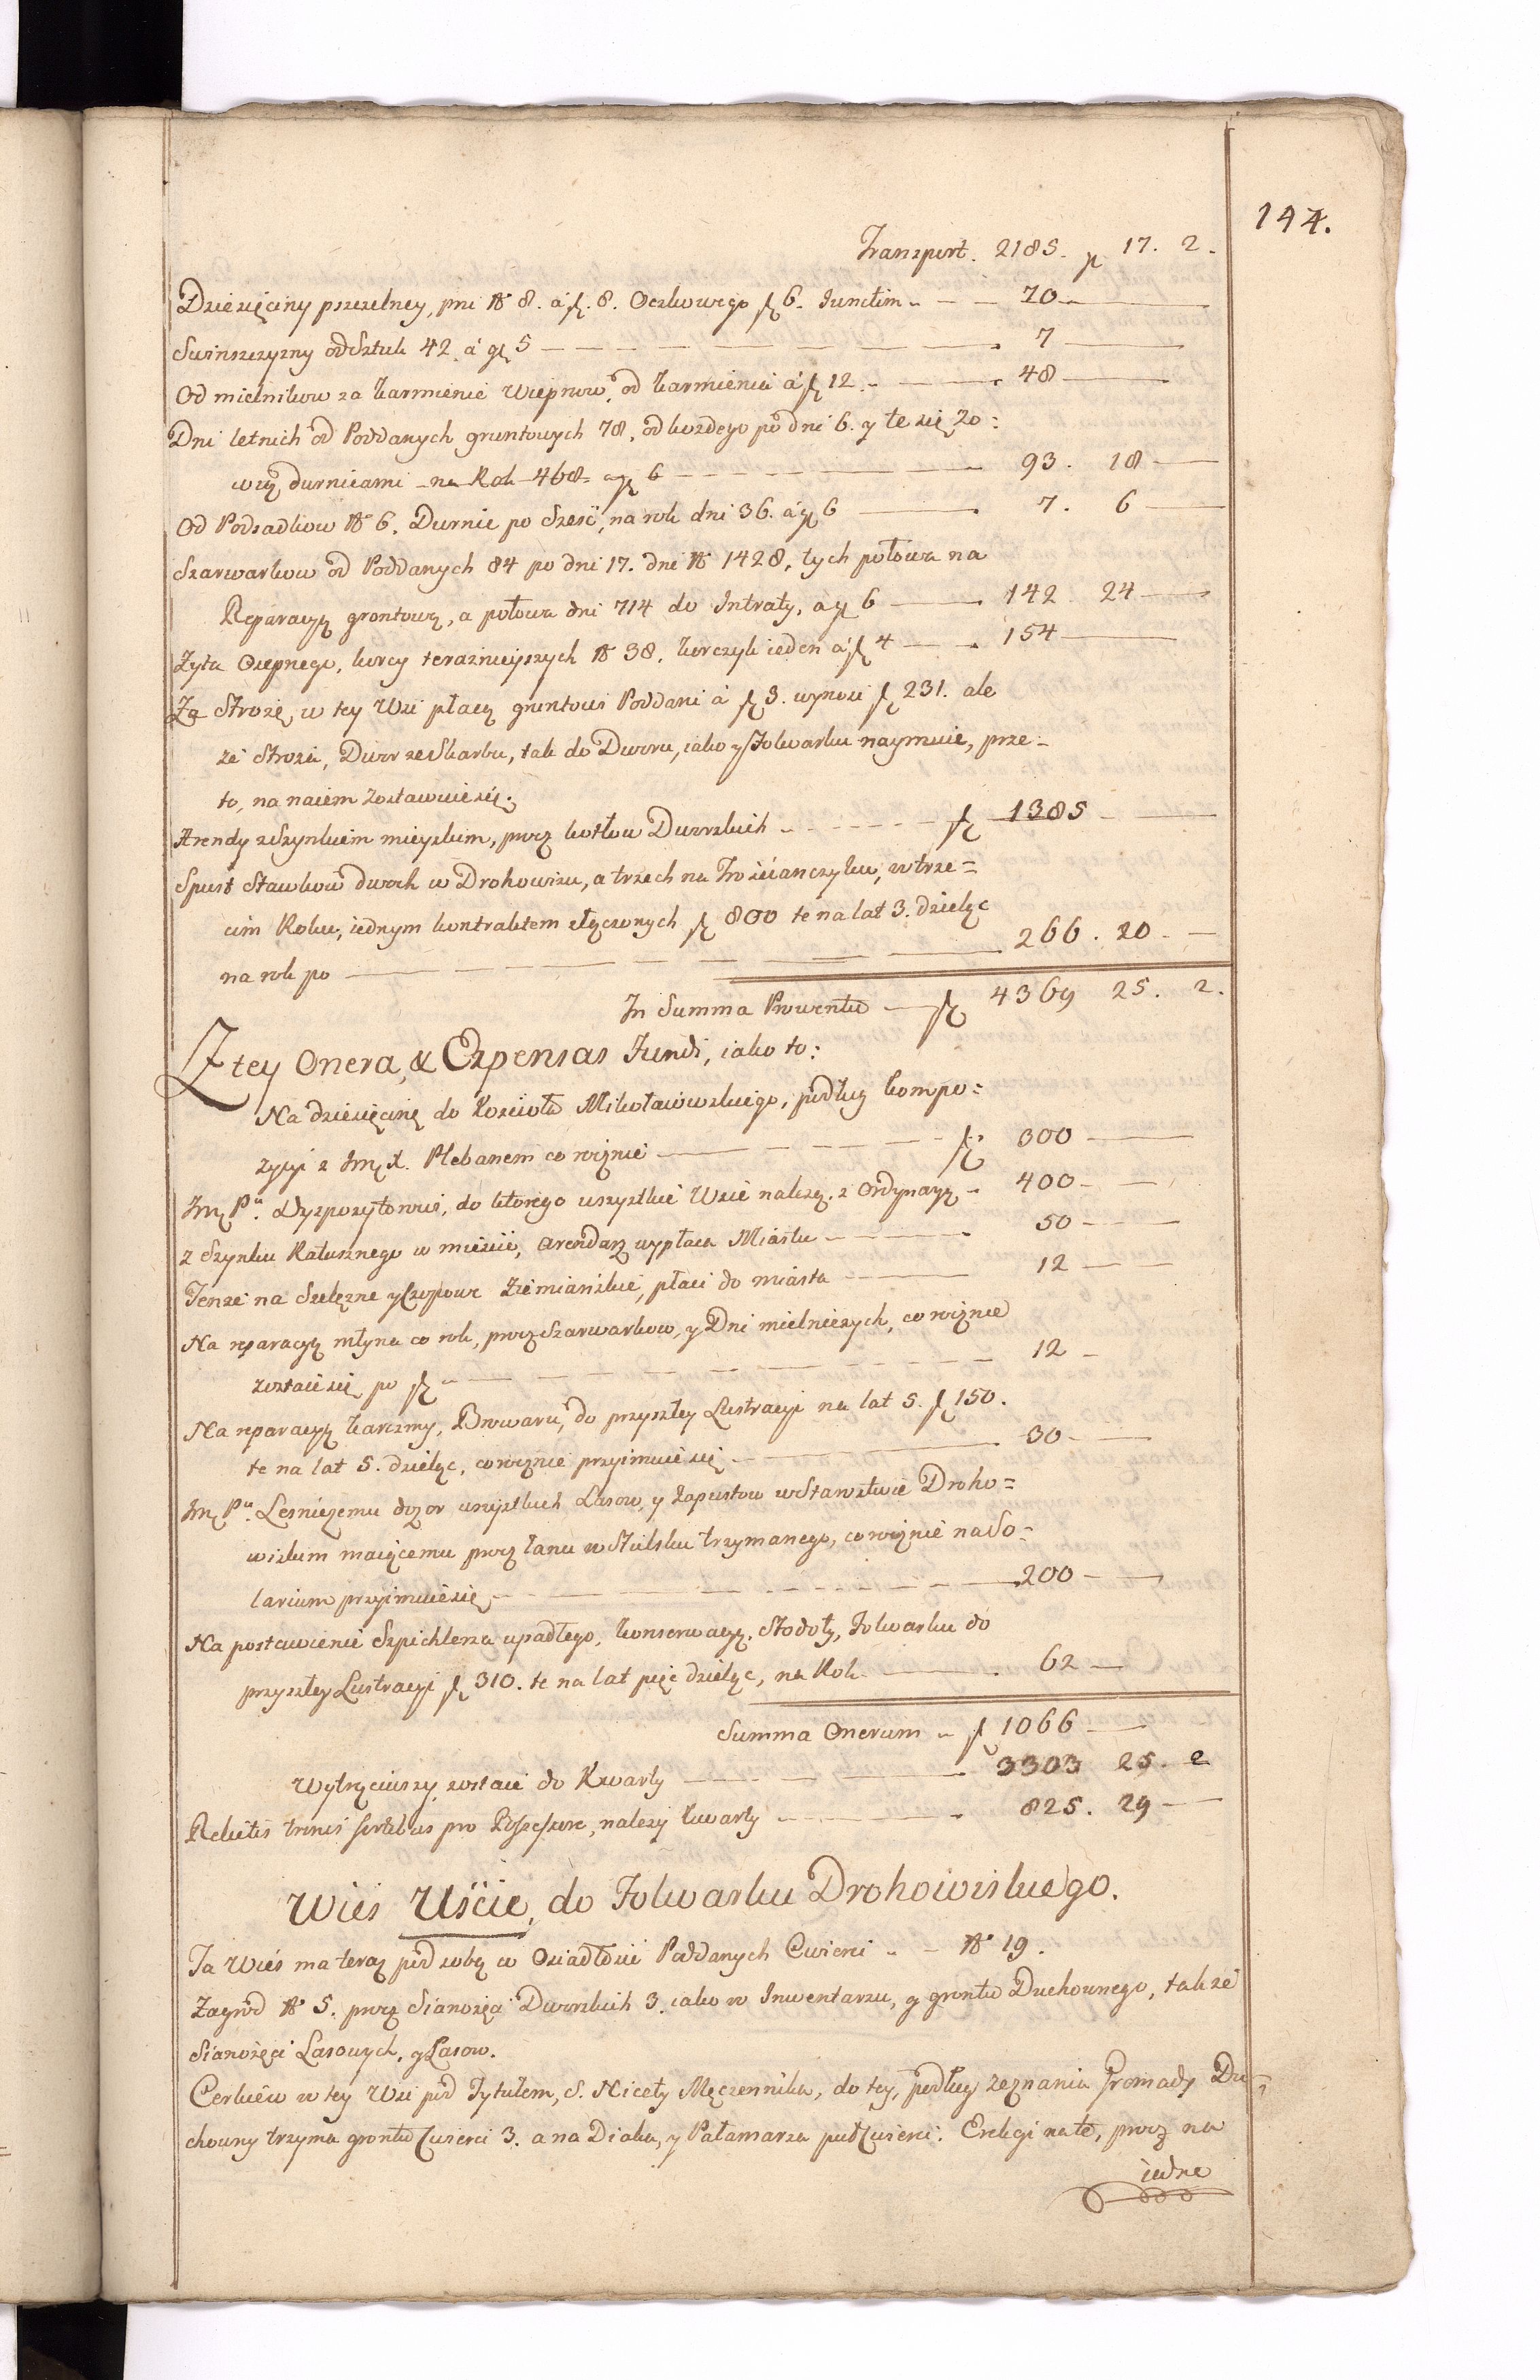 144.
Transport. 2185. gr 17. 2.
Dziesięciny pszczelney, pni N 8. á fl. 8. Oczkowego fl 6. Junctim 70
Swinszczyzny od Sztuk 42. á gr 5 7
Od mielnikow za karmienie Wieprzow, od karmienia á fl 12. 48
Dni letnich od Poddanych gruntowych 78, od kożdego po dni 6. y te się zo:
wią durnicami na Rok 468. a gr 6 93. 18
Od Podsadkow N 6. Durnic po Sześć, na rok dni 36. á gr 6 7. 6
Szarwarkow od Poddanych 84 po dni 17. dni N 1428, tych połowa na
Reparacyą grontową, a połowa dni 714 do Intraty, a gr 6 142. 24
Zyta Osepnego, korcy teraznieyszych N 38, korczyk ieden á fl 4 154
Za Strożę w tey Wsi płacą gruntowi Poddani á fl 3. wynosi fl 231. ale
że Stroża, Dwor ze Skarbu, tak do Dworu, iako y Folwarku naymuie, prze-
to, na naiem zostawuie się.
Arendy z Szynkiem mieyskim, procz kotłow Dworskich fl 1385
Spust Stawkow dwoch w Drohowizu, a trzech na Trościanczyku, w trze=
cim Roku, iednym kontraktem złączonych fl 800 te na lat 3. dzieląc
na rok po 266. 20
In Summa Prowentu fl 4369 25. 2.
Z tey Onera, & Expensas Fundi, iako to:
Na dziesięcinę do Kościoła Mikołaiowskiego, podług kompo:
zycyi z Jmę X. Plebanem co rocznie fl 300
Jmę Pu. Dyspozytorowi, do ktorego wszystkie Wsie należą. z Ordynaryą 400
z Szynku Ratusznego w mieście, Arendarz wypłaca Miastu 50
Tenże na Szelężne y Czopowe Ziemiańskie, płaci do miasta 12
Na reparacyą młyna co rok, procz Szarwarkow, y Dni mielniczych, co rocznie
zostaie się po fl 12
Na reparacyą karczmy, Browaru, do przyszłey Lustracyi na lat 5. fl 150.
te na lat 5. dzieląc, co rocznie przyimuie się 30
Jmę Pu. Lesniczemu dozor wszystkich Lasow, y zapustow w Starostwie Droho=
wiskim maiącemu procz łanu w Stulsku trzymanego, co rocznie na So=
larium przyimuie się 200
Na postawienie Szpichlerza upadłego, konserwacyą Stodoły, Folwarku do
przyszłey Lustracyi fl 310. te na lat pięć dzieląc, na Rok 62
Summa Onerum fl 1066
Wytrąciwszy zostaie do Kwarty 3303 25. 2
Relictis trinis sortibus pro Possessore, należy kwarty 825. 29
Wieś Uście, do Folwarku Drohowiskiego.
Ta Wieś ma teraz pod sobą w Osiadłości Poddanych Cwierci N 19.
Zagrod N 5. procz Sianożęci Dworskich 3. iako w Inwentarzu, y grontu Duchownego, także
Sianożęci Lasowych, y Lasow.
Cerkiew w tey Wsi pod Tytułem, S. Nicety Męczennika, do tey, podług zeznania Gromady Du=
chowny trzyma grontu Cwierci 3. a na Diaka, y Pałamarza puł Cwierci. Erekcyi na to, procz na
iedne